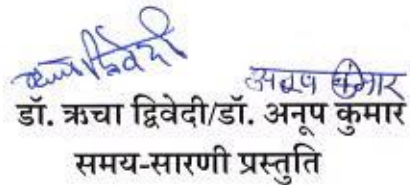 ऋचा द्विवेदी अनूप कुमार
डॉ. ऋचा द्विवेदी/डॉ. अनूप कुमार
समय-सारणी प्रस्तुति